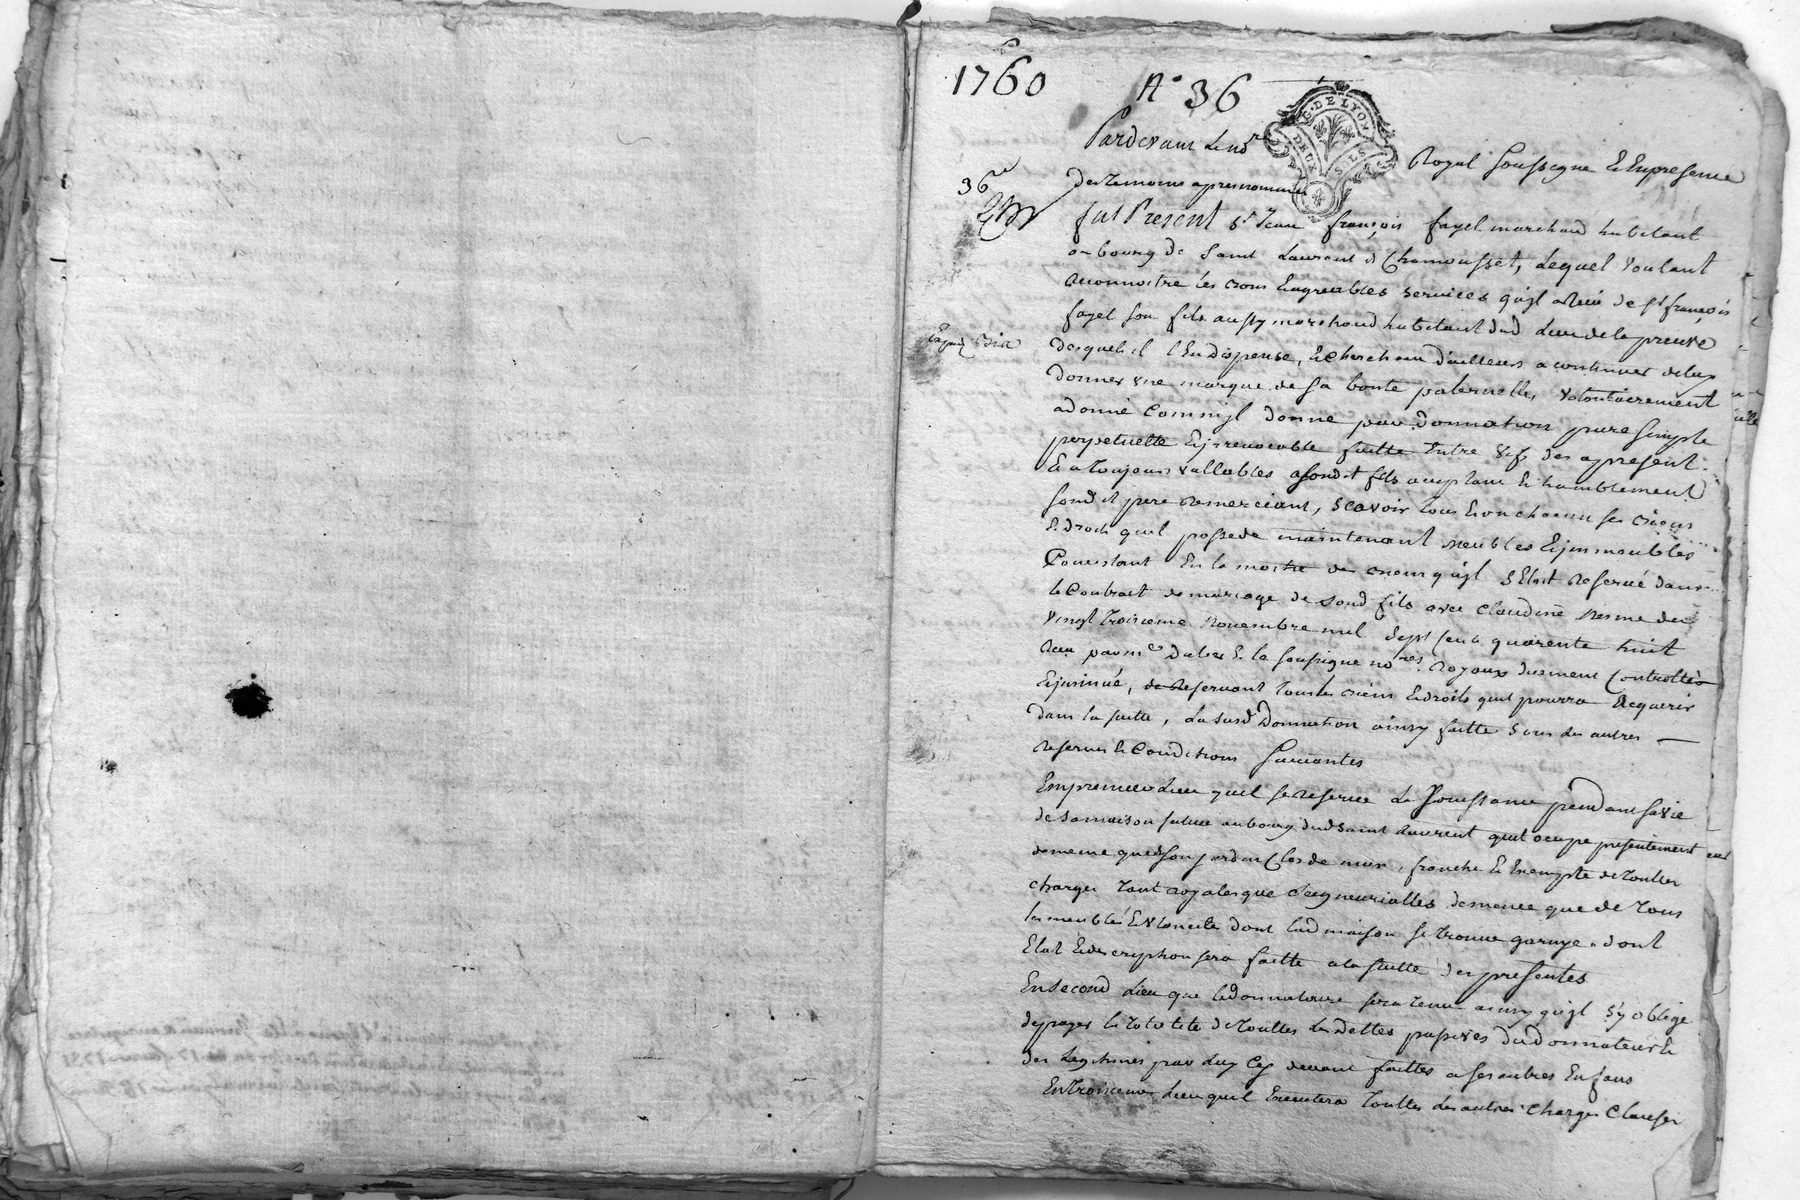 1760
N° 36
G. DE LYON
DEUX SLS
Pardevant le no^re Royal soussigné & Enpresence
36^e
des temoins apres nommés
fut Present s^r Jean françois fayel marchand habitant
au bourg de Saint Laurent d Chamousset, Lequel voulant
reconnoitre les bons & agreables services qu'il a Reçu de s^r françois
fayel son fils aussy marchand habitant dud Lieu de la preuve
desquels il l'En dispense, & cherchant d'ailleurs a continuer de luy
donner une marque de sa bonté paternelle, volontairement
a donné Comm'il donne par donnation pure simple
perpetuelle & jrrevocable faitte Entre vifs des apresent
& a toujours vallables asondit fils acceptant & humblement
sondit pere remerciant, scavoir tous & un chacun ses biens
& droits quil possede maintenant meubles & jmmeubles
Consistant En la moitié des biens qu'il s'Etoit Reservé dans
le Contract de mariage de sond fils avec Claudine
vingt troisieme novembre mil sept Cent quarente huit
Reçu par m^e & le soussigne no^res Royaux duement Controllé
& jnsinué, se Reservant tous les biens & droits quil pourra Acquerir
dans la suitte, La susd^e Donnation ainsy faitte sous les autres
reserves & Conditions suivantes
En premier Lieu quil se Reserve la Jouissance pendant sa vie
de sa maison situee au bourg dud saint Laurent quil occupe presentement
de meme que de son jardin Clos de murs, franche & Exempte de touttes
charges tant royales que seigneurialles de meme que de tous
les meubles & Ustencils dont lad maison se trouve garnye, dont
Etat & description sera faitte a la suitte des presentes
En second Lieu que le donnataire sera tenu ainsy qu'il s'y oblige
de payer la totalité de touttes les Dettes passives du Donnateur &
des Legitimes par luy Cy devant faittes a ses autres Enfans
En troisieme Lieu quil Executera touttes les autres Charges Clauses